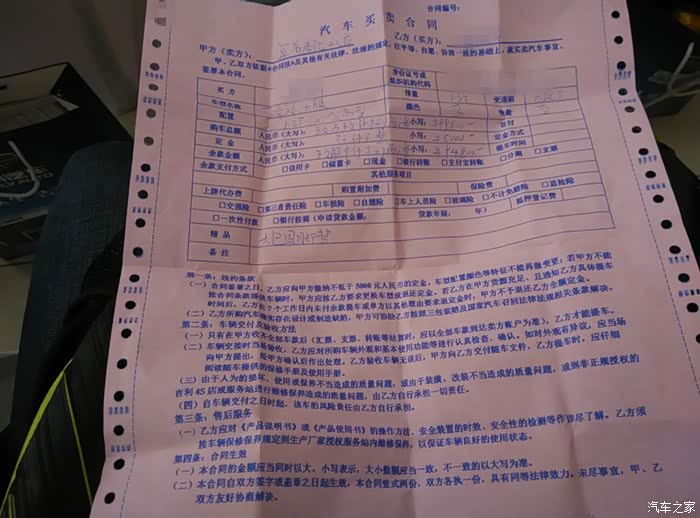 合同编号：
汽 车 买 卖 合 同
甲方（卖方）：
乙方（买方）：
甲、乙双方依据《合同法》及其他有关法律、法规的规定，在平等、自愿、协商一致的基础上，就买卖汽车事宜，
签署本合同。
买 方
身份证号或组织机构代码
车型名称
排量 1.5T 变速箱
配置
颜色 数量
购车总额 人民币（大写） 小写： 首付
定 金 人民币（大写） 小写：5000 定金方式
余款金额 人民币（大写） 小写： 提车时间
余款支付方式 □信用卡 □储蓄卡 □现金 □银行转账 □支付宝转账 □分期 □支票
其他服务项目
上牌代办费 购置附加费 保险费
□交强险 □第三者责任险 □车损险 □自燃险 □车上人员险 □玻璃险 □不计免赔险 □盗抢险
□一次性付款 □银行按揭（申请贷款金额： 贷款年限： 年） 抵押登记费
精 品
备 注
第一条：违约条款
（一）合同签署之日，乙方应向甲方缴纳不低于 5000 元人民币的定金，车型配置颜色等特征不能再做变更；若甲方不能
按合同条款提供车辆时，甲方应按乙方要求更换车型或退还定金。若乙方在甲方货源充足、且通知乙方具体提车
时间后，乙方在 7 个工作日内未付全款提车或单方以其他理由要求退定金时，甲方不予退还乙方全额定金。
（二）乙方所购汽车确实存在设计或制造缺陷，甲方可协助乙方按照三包索赔及国家汽车召回法律法规相关条款解决。
第二条：车辆交付及验收方法
（一）只有在甲方收齐全部车款后（汇票、支票、转账等结算时，应以全部车款到达卖方账户为准），乙方才能提车。
（二）车辆交接时当场验收，乙方应对所购车辆外观和基本使用功能等进行认真检查、确认。如对外观有异议，应当场
向甲方提出，经甲方确认后作出处理。乙方验收车辆无误后，甲方向乙方交付随车文件，乙方提车时，应仔细
阅读随车提供的保修手册及使用手册。
（三）由于人为的损坏、使用或保养不当造成的质量问题，或由于装潢、改装不当造成的质量问题，或到非正规授权的
吉利 4S 店或服务站进行维修保养造成的质量问题，由乙方自行承担一切责任。
（四）自车辆交付之日时起，该车的风险责任由乙方自行承担。
第三条：售后服务
（一）乙方应对《产品说明书》或《产品使用书》的操作方法、安全装置的时效、安全性的检测等作详尽了解。乙方须
按车辆保修保养规定到生产厂家授权服务站内维修保养，以保证车辆良好的使用状态。
第四条：合同生效
（一）本合同的金额应当同时以大、小写表示，大小数额应当一致，不一致的以大写为准。
（二）本合同自双方签字或盖章之日起生效，本合同壹式两份，双方各执一份，具有同等法律效力。未尽事宜，甲、乙
双方友好协商解决。
汽车之家